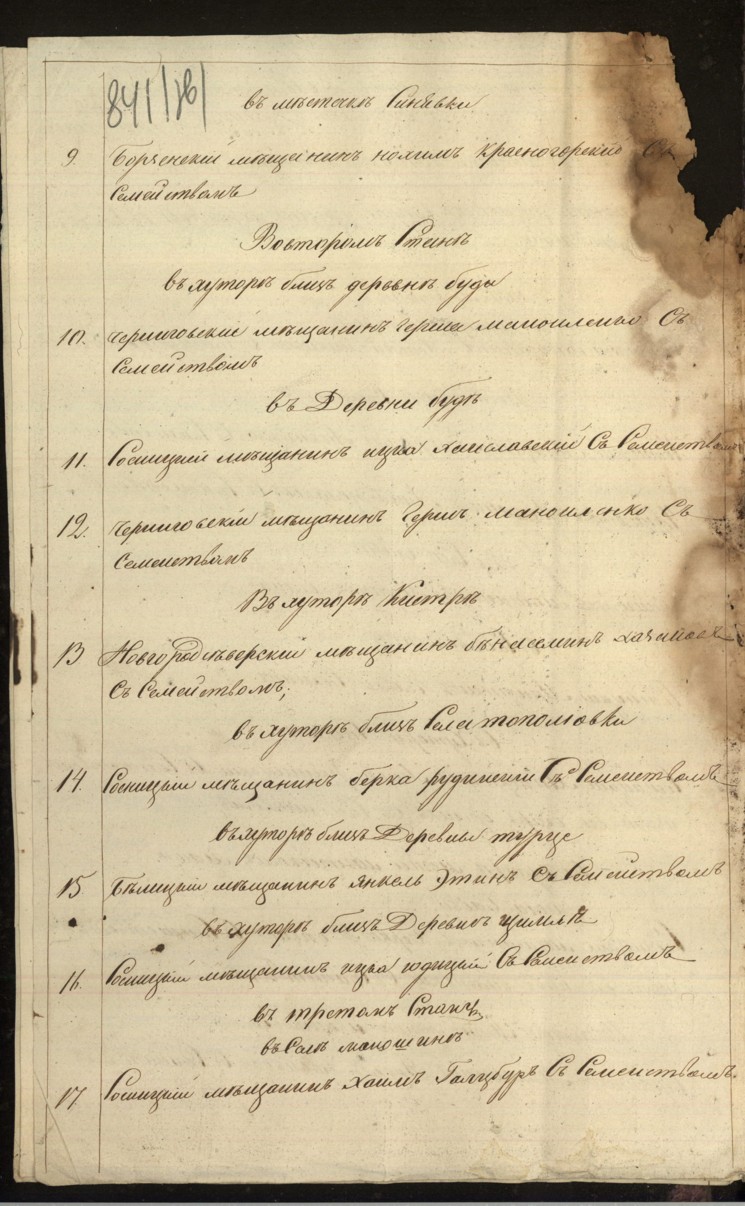 841/16/
въ местечкѣ Синявки
9. Борзенскій мѣщенинъ Нохимъ Красногорскій Съ
Семействомъ
Вовторомъ Станѣ
въ хуторѣ близъ деревнѣ буды
10. черниговскій мѣщанинъ Герша маноиленко Съ
Семействомъ
въ Деревни будѣ
11. Сосницкій мѣщанинъ ицка хаиславскій Съ Семействомъ
12. черниговскій мѣщанинъ Гершъ маноиленко Съ
Семействамъ
Въ хуторѣ Кистрѣ
13 Новгородсѣверскій мѣщанинъ бѣнесеминъ
Съ Семействомъ;
въ хуторѣ близъ Села тополювки
14. Сосницкій мѣщанинъ берка рудинскій Съ Семействомъ
въ хуторѣ близъ Деревны турце
15 Бѣлицкій мѣщанинъ янкель Этинъ Съ Семействомъ
въ хуторѣ близъ Деревнѣ
16. Сосницкій мѣщанинъ ицка юдицкій Съ Семействомъ
въ третомъ Стану.
въ Селѣ макошинѣ
17 Сосницкій мѣщанинъ Хаимъ Галцбуръ Съ Семействомъ.